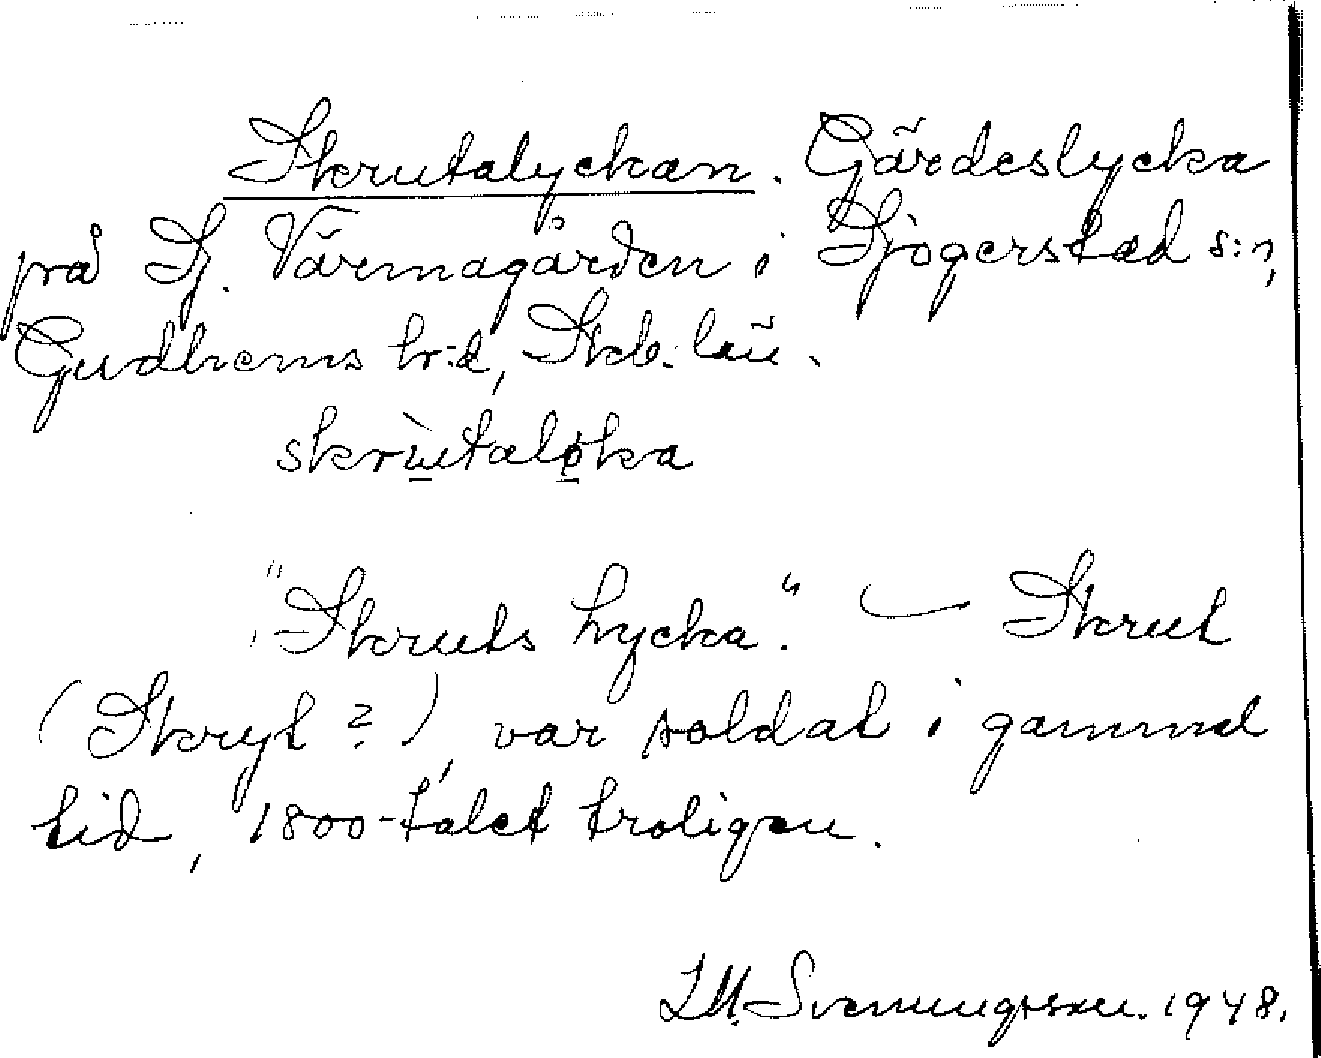 Skrutalyckan. Gärdeslycka
på Sj. Värmagården i Sjogerstad s:n,
Gudhems h:d, Skb. län.
skrùtaløka
"Skruts Lycka." — Skrut
(Skryt?), var soldat i gammal
tid, 1800-talet troligen.
Svenungsson. 1948.